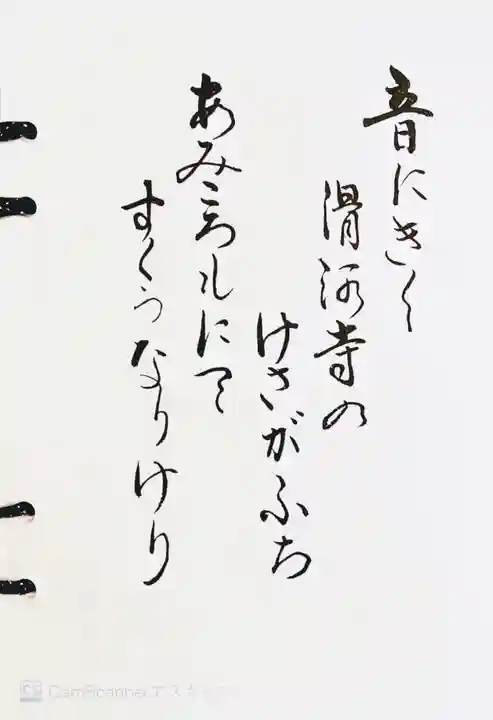 音にきく
滑河寺の
けさがふち
あみころもにて
すくうなりけり
CS CamScanner